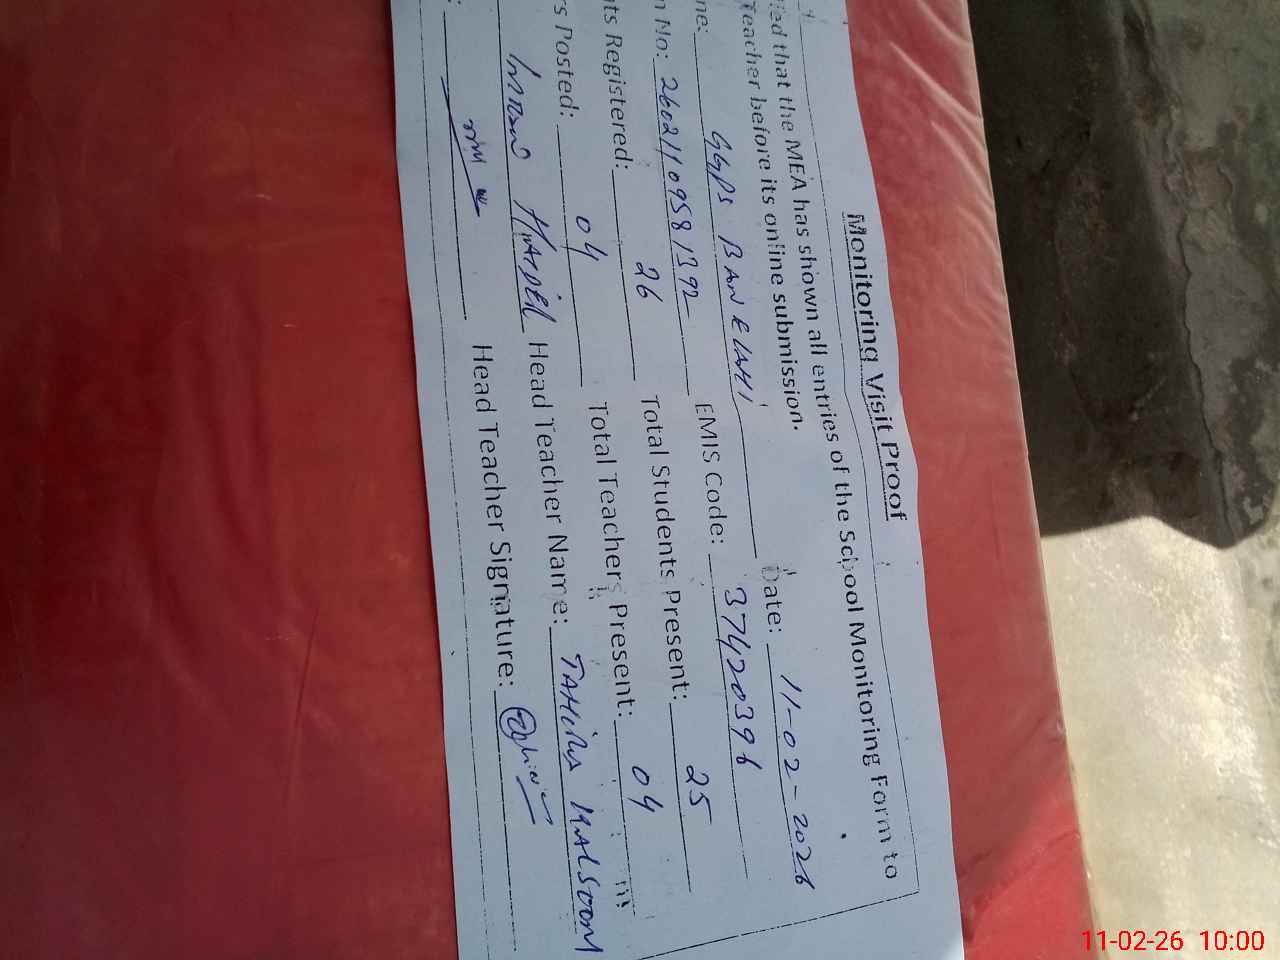 Monitoring Visit Proof
ied that the MEA has shown all entries of the School Monitoring Form to
Teacher before its online submission.
me: GGPS BANELAHI Date: 11-02-2026
n No: 26021109581392 EMIS Code: 37420396
ts Registered: 26 Total Students Present: 25
rs Posted: 04 Total Teachers Present: 04
Imran HAIDER Head Teacher Name: TAHIRA KALSOOM
: Head Teacher Signature:
11-02-26 10:00